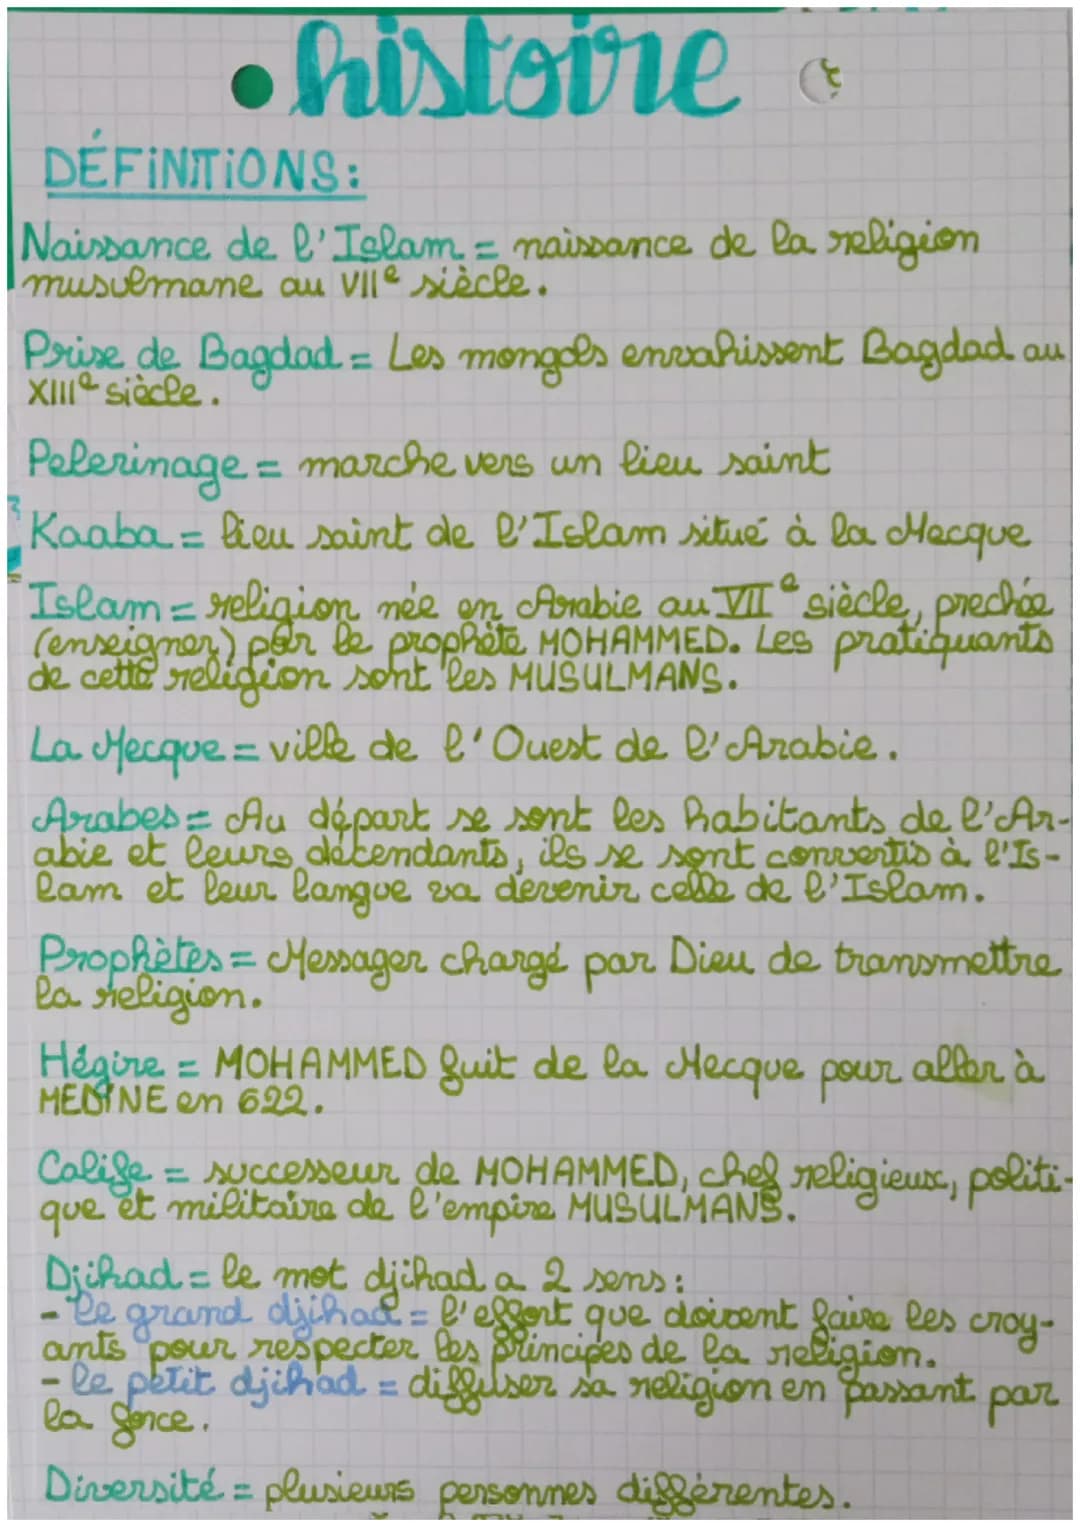 histoire
DÉFINITIONS:
Naissance de l'Islam = naissance de la religion
musulmane au VIIe siècle.
Prise de Bagdad = Les mongols envahissent Bagdad au
XIIIe siècle.
Pelerinage = marche vers un lieu saint
Kaaba = lieu saint de l'Islam situé à la Mecque
Islam = religion née en Arabie au VIIe siècle, prechée
(enseigner) par le prophète MOHAMMED. Les pratiquants
de cette religion sont les MUSULMANS.
La Mecque = ville de l'Ouest de l'Arabie.
Arabes = Au départ se sont les habitants de l'Ar-
abie et leurs détendants, ils se sont convertis à l'Is-
lam et leur langue va devenir celle de l'Islam.
Prophètes = Messager chargé par Dieu de transmettre
la religion.
Hégire = MOHAMMED fuit de la Mecque pour aller à
MEDINE en 622.
Calife = successeur de MOHAMMED, chef religieux, politi-
que et militaire de l'empire MUSULMANS.
Djihad = le mot djihad a 2 sens:
- le grand djihad = l'effort que doivent faire les croy-
ants pour respecter les principes de la religion.
- le petit djihad = diffuser sa religion en passant par
la force.
Diversité = plusieurs personnes différentes.